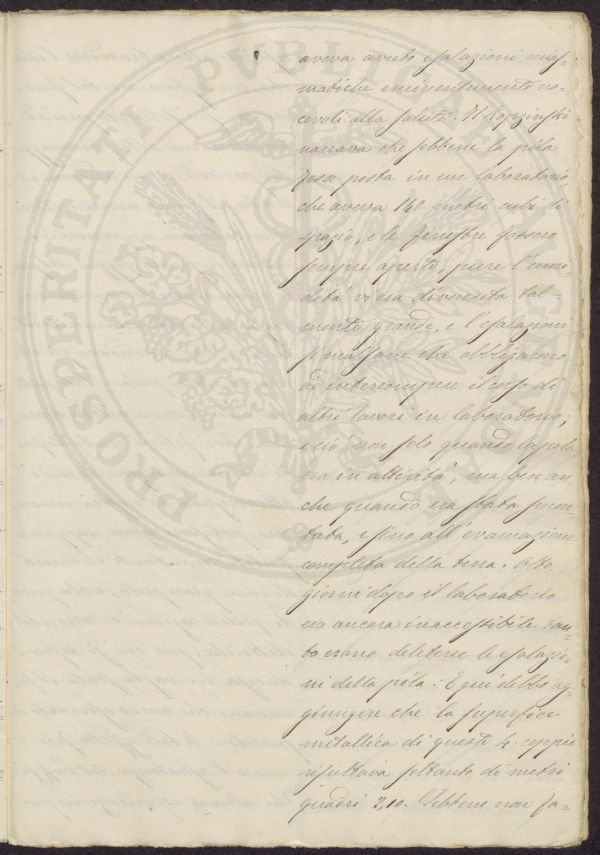 aveva avuto esalazioni mias-
matiche eminentemente no-
cevoli alla salute. Il Kopzinski
narrava che sebbene la pila
fosse posta in un laboratorio,
che aveva 140 metri cubi di
spazio, e le finestre fossero
sempre aperte, pure l'umi-
dità vi era divenuta tal-
mente grande, e l'esalazioni
sì malsane che obbligarono
ad interrompere il corso di
altri lavori in laboratorio;
e ciò non solo quando la pila
era in attività, ma ben an-
che quando era stata smon-
tata, e sino all'evamazione
completa della terra. Otto
giorni dopo il laboratorio
era ancora inaccessibile tan-
to erano deleteree le esalazio-
ni della pila. E qui debbo ag-
giungere che la superficie
metallica di questi 4 coppie
risultava soltanto di metri
quadri 2,10. Sebbene non fa-
PROSPERITATI PVBLICAE